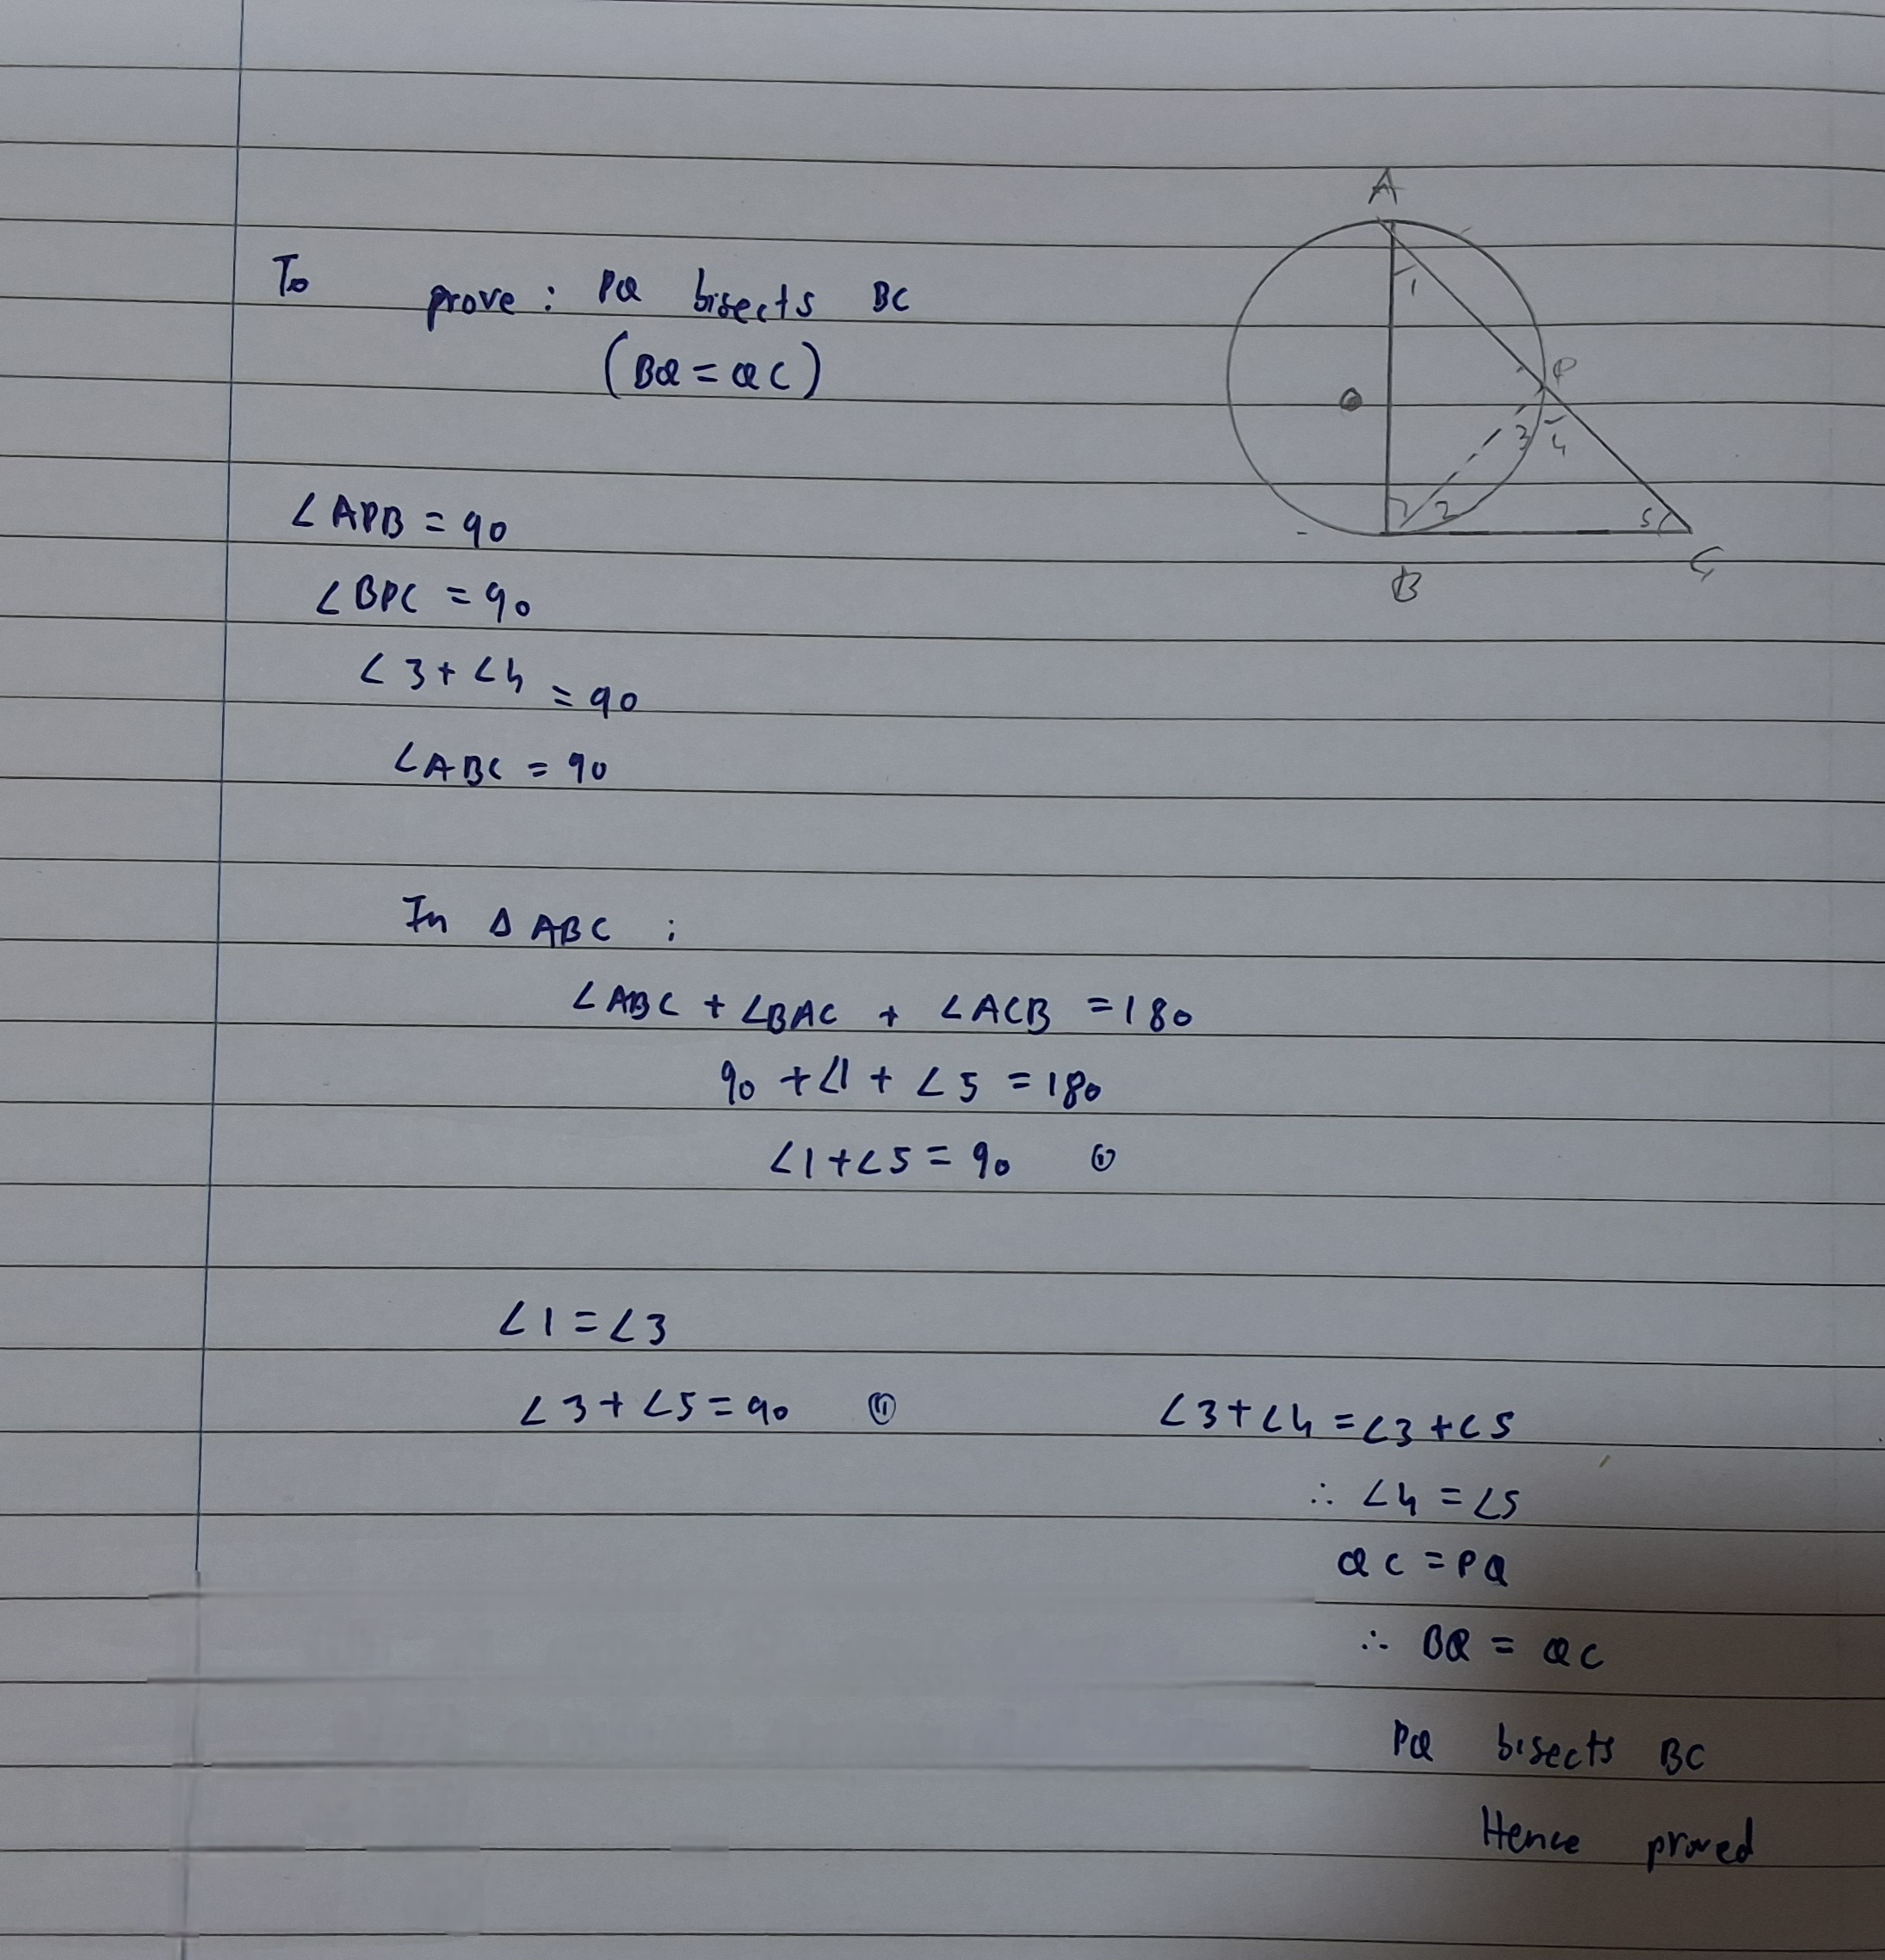 A
1
To prove : PQ bisects BC
(BQ = QC)
P
3 4
2 5
B C
∠APB = 90
∠BPC = 90
∠3 + ∠4 = 90
∠ABC = 90
In Δ ABC :
∠ABC + ∠BAC + ∠ACB = 180
90 + ∠1 + ∠5 = 180
∠1 + ∠5 = 90 (i)
∠1 = ∠3
∠3 + ∠5 = 90 (ii)
∠3 + ∠4 = ∠3 + ∠5
∴ ∠4 = ∠5
QC = PQ
∴ BQ = QC
PQ bisects BC
Hence proved